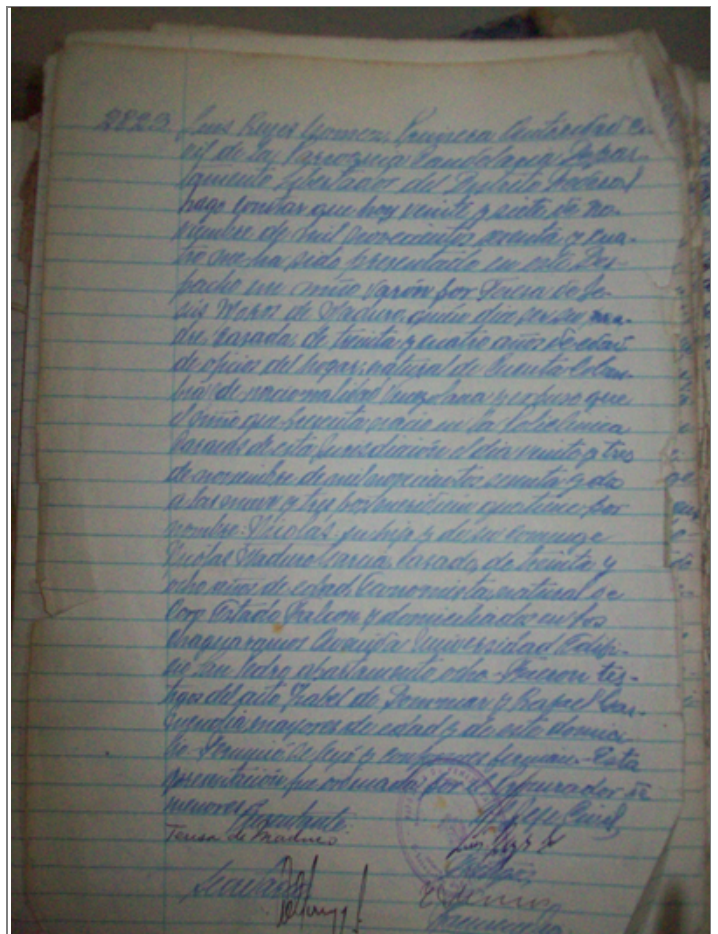 2823 Luis Reyes Gomez, Primera Autoridad Ci-
vil de la Parroquia Candelaria, Depar-
tamento Libertador del Distrito Federal
hago constar que hoy veinte y siete de no-
viembre de mil novecientos sesenta y cua-
tro me ha sido presentado en este Des-
pacho un niño varón por Teresa de Je-
sús Moros de Maduro, quien dice ser su ma-
dre, casada, de treinta y cuatro años de edad
de oficios del hogar, natural de Cucuta Colom-
bia de nacionalidad y expuso que
el niño que presenta nació en la Policlinica
Caracas de esta Jurisdicción el día veinte y tres
de noviembre de mil novecientos sesenta y dos
a las nueve y tres post meridiem que tiene por
nombre: Nicolas; su hijo y de su conyuge
Nicolas Maduro Garcia, casado, de treinta y
ocho años de edad, Economista, natural de
Coro Estado Falcon y domiciliados en Los
Chaguaramos Avenida Universidad Edifi-
cio San Pedro apartamento ocho. Fueron tes-
tigos del acto Isabel de y Rafael
mayores de edad y de este domici-
lio. Se leyó y conformes firman. Esta
presentación fue ordenada por el Procurador de
menores
Presentante: El Jefe Civil,
Teresa de Maduro